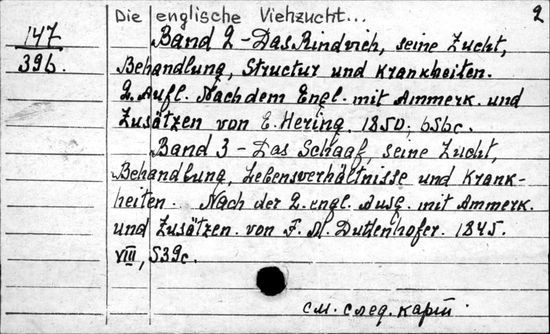 Die englische Viehzucht... 2
147 Band 2 - Das Rindvich, seine Zucht,
39b. Behandlung, Structur und Krankheiten.
2. Aufl. Nach dem Engl. mit Ammerk. und
Zusätzen von E. Hering. 1850; 656c.
Band 3 - Das Schaaf, seine Zucht,
Behandlung, Lebensverhältnisse und Krank-
heiten. Nach der 2. engl. Ausg. mit Ammerk.
und Zusätzen. von F. M. Duttenhofer. 1845.
VIII, 539c.
см. след. карт.